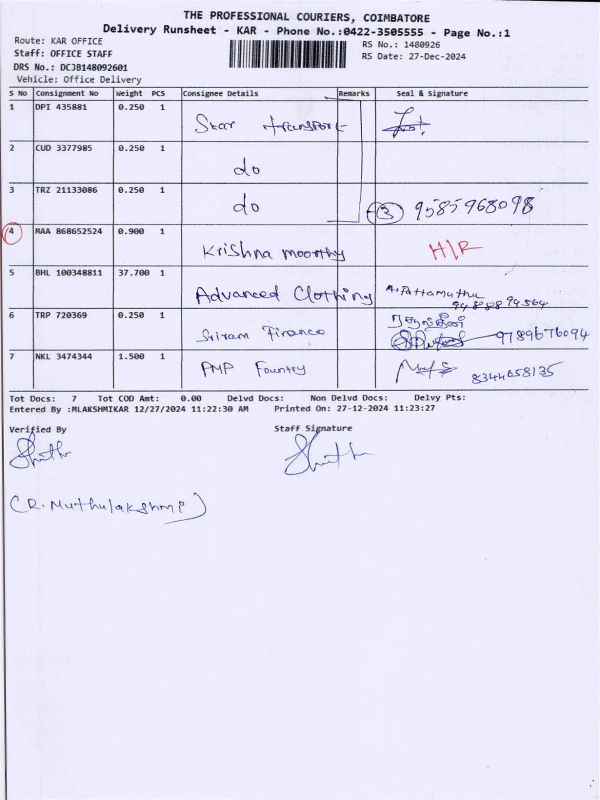 THE PROFESSIONAL COURIERS, COIMBATORE
Delivery Runsheet - KAR - Phone No.:0422-3505555 - Page No.:1
Route: KAR OFFICE
RS No.: 1480926
Staff: OFFICE STAFF
RS Date: 27-Dec-2024
DRS No.: DCJB148092601
Vehicle: Office Delivery
S No Consignment No Weight PCS Consignee Details Remarks Seal & Signature
1 DPI 435881 0.250 1 Star transport
2 CUD 3377985 0.250 1 do
3 TRZ 21133086 0.250 1 do 3 9585968098
4 MAA 868652524 0.900 1 Krishna moorthy H/R
5 BHL 100348811 37.700 1 Advanced Clothing A. Pattamuthu
6 TRP 720369 0.250 1 Sriram Finance 9789676094
7 NKL 3474344 1.500 1 PMP Fountry 8344658135
Tot Docs: 7 Tot COD Amt: 0.00 Delvd Docs: Non Delvd Docs: Delvy Pts:
Entered By :MLAKSHMIKAR 12/27/2024 11:22:30 AM Printed On: 27-12-2024 11:23:27
Verified By Staff Signature
(R. Muthulakshmi)